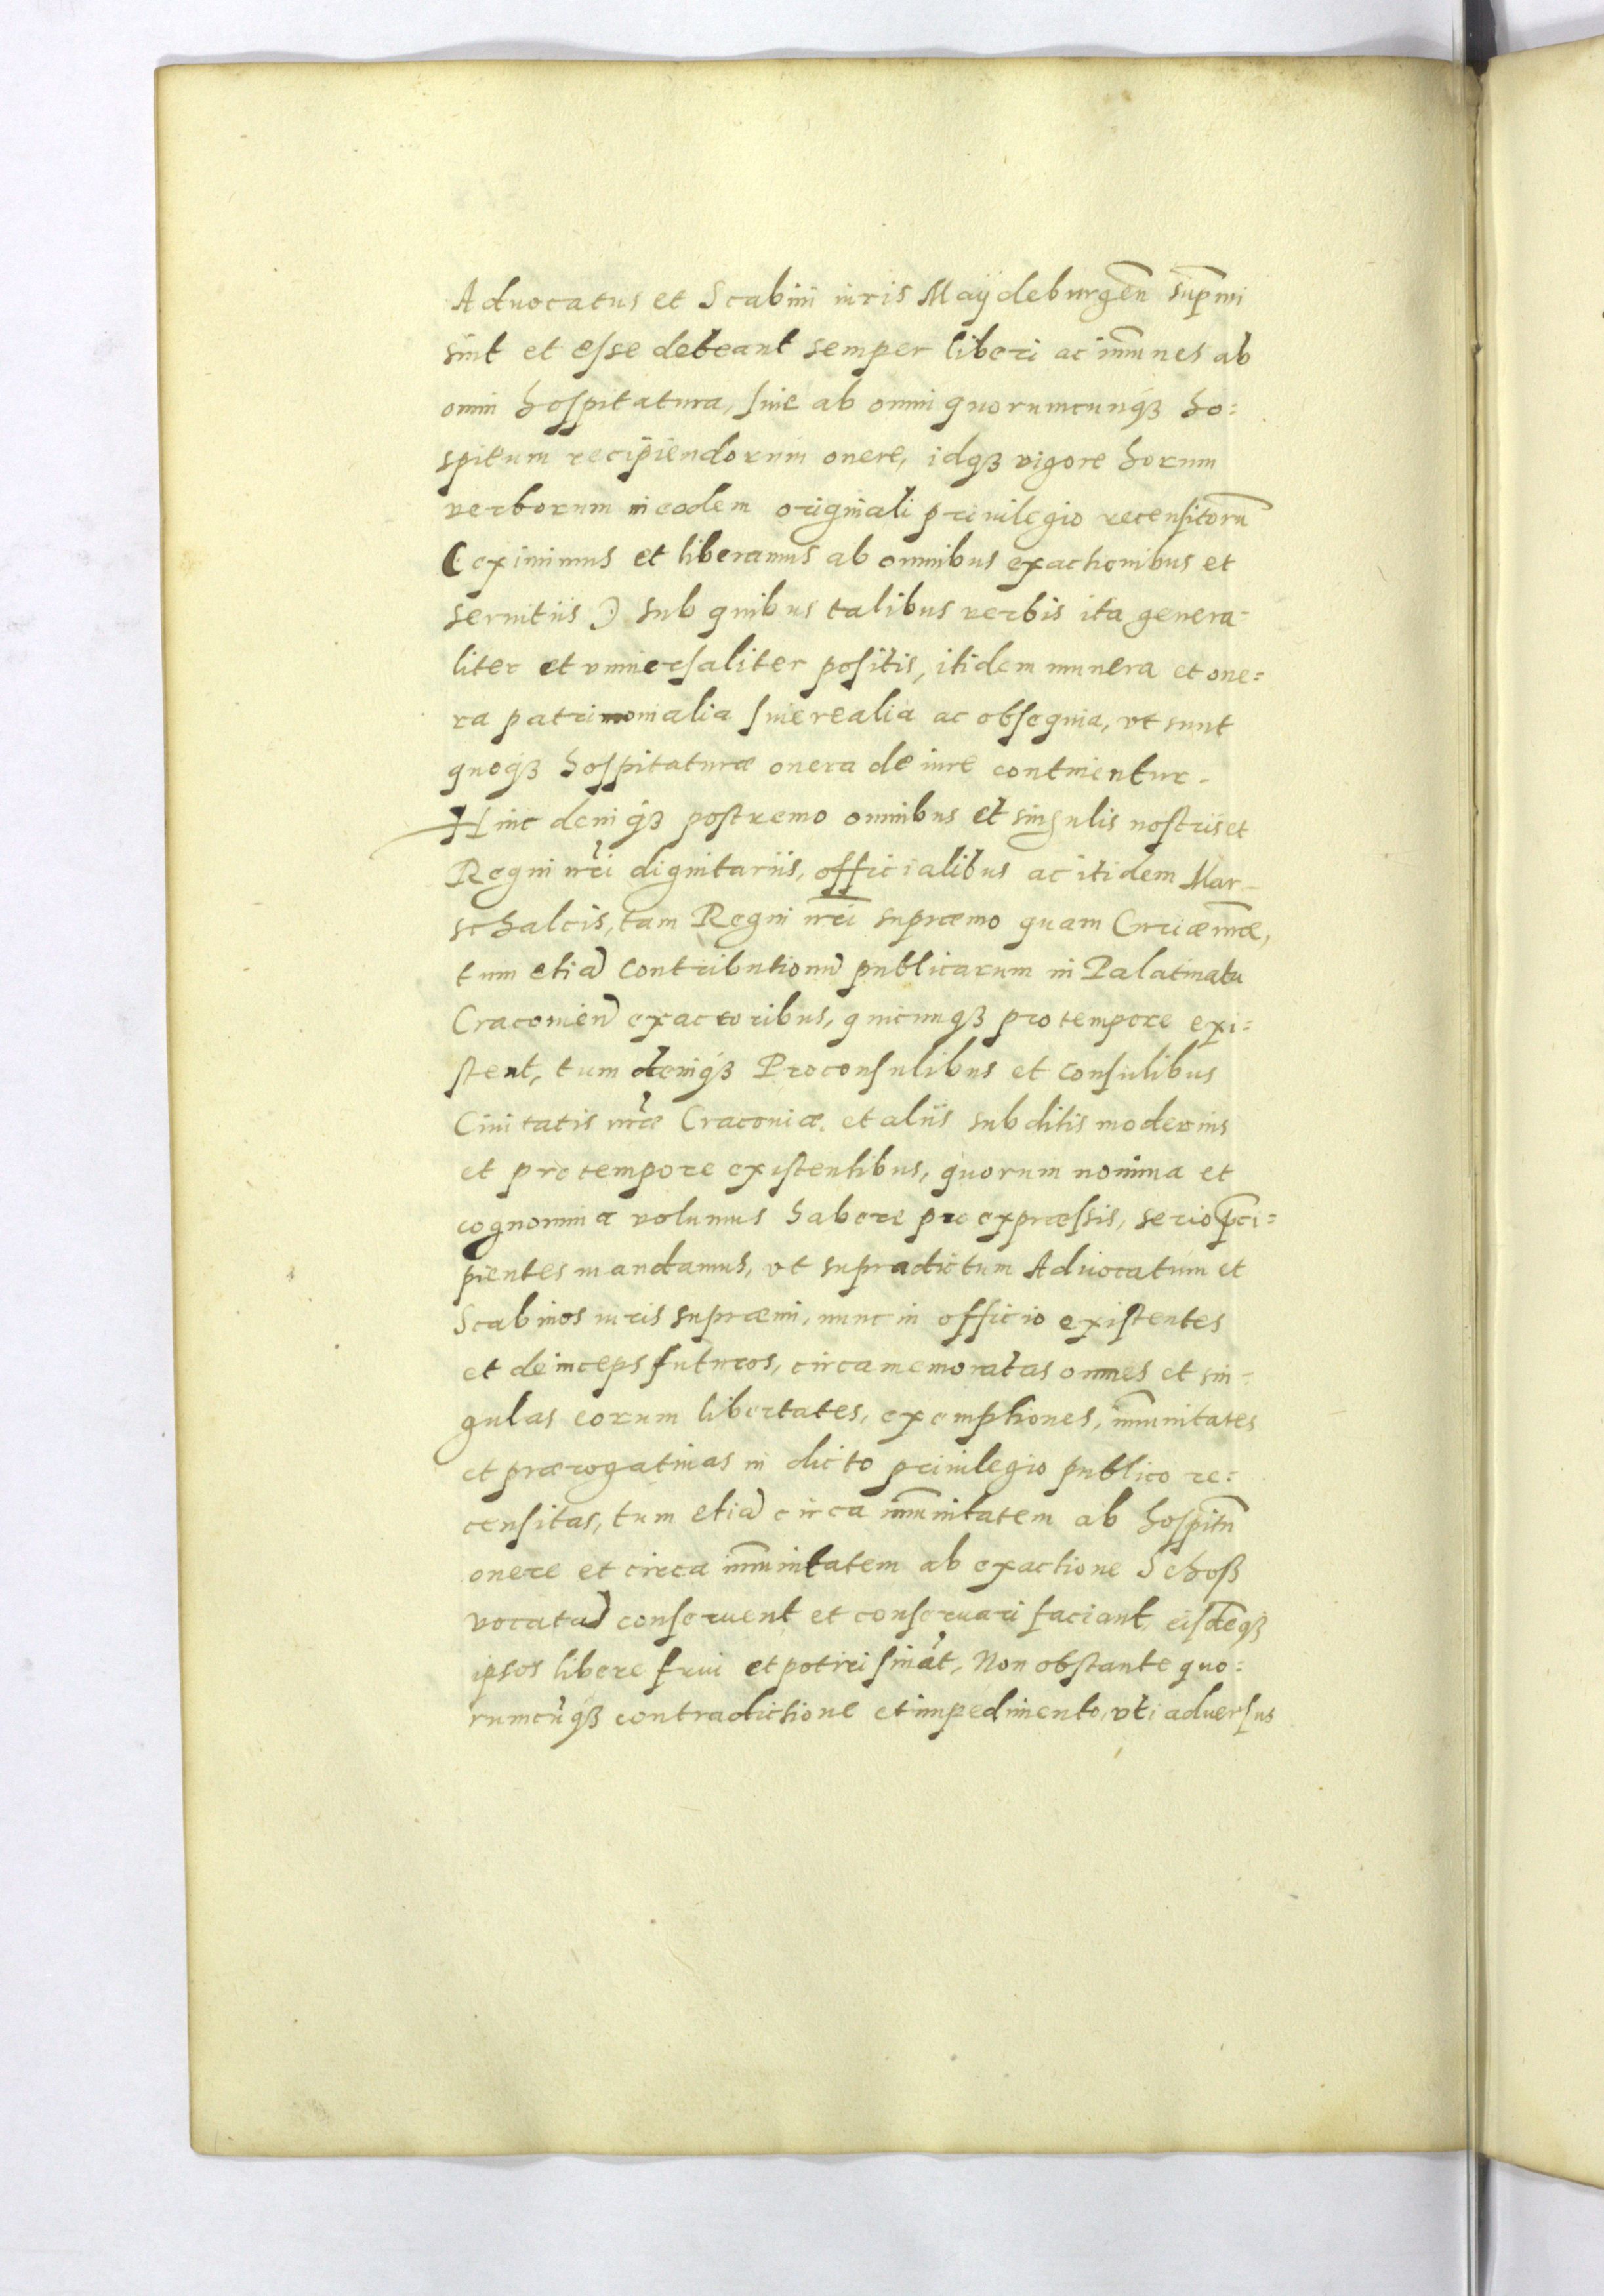 Aduocatus et Scabini iuris Maÿdeburgen̄ sup̄mi
sint et esse debeant semper liberi ac im̄unes ab
omni hospitatura, siue ab omni quorumcunqꝫ ho=
spitum recipiendorum onere, idqꝫ vigore horum
verborum in eodem originali priuilegio recensitorū
(eximimus et liberamus ab omnibus exactionibus et
seruitiis) sub quibus talibus verbis ita genera-
liter et vniuersaliter positis, itidem munera et one=
ra patrimonialia siue realia ac obsequia, vt sunt
quoqꝫ hospitaturæ onera de iure continentur.
Hinc deniqꝫ postremo omnibus et singulis nostris et
Regni nr̄i dignitariis, officialibus ac itidem Mar-
schalcis, tam Regni nr̄i supræmo quam Curiæ nr̄æ,
tum etiā contributionū publicarum in Palatinatu
Cracouien̄ exactoribus, quicunqꝫ pro tempore exi=
stent, tum deniqꝫ Proconsulibus et consulibus
Ciuitatis nr̄æ Cracouiæ, et aliis subditis modernis
et pro tempore existentibus, quorum nomina et
cognomina volumus habere pro expræssis, serio p̄ci=
pientes mandamus, vt supradictum Aduocatum et
Scabinos iuris supræmi, nunc in officio existentes
et deinceps futuros, circa memoratas omnes et sin=
gulas eorum libertates, exemptiones, im̄unitates
et prærogatiuas in dicto priuilegio publico re=
censitas, tum etiā circa im̄unitatem ab hospitū
onere et circa im̄unitatem ab exactione Schoß
vocata conseruent et conseruari faciant, eisdēqꝫ
ipsos libere frui et potiri sināt, Non obstante quo=
rumcūqꝫ contradictione et impedimento, vti aduersus